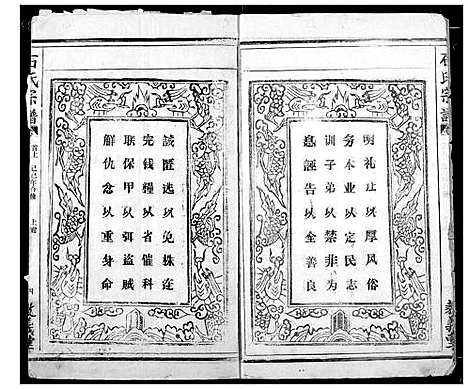 石氏宗譜
明礼让以厚风俗
务本业以定民志
训子弟以禁非为
息誣告以全善良
敦義堂
誡匿逃以免株连
完钱糧以省催科
联保甲以弭盗贼
解仇忿以重身命
石氏宗譜
首上 己巳年合修 上諭
四
敦義堂